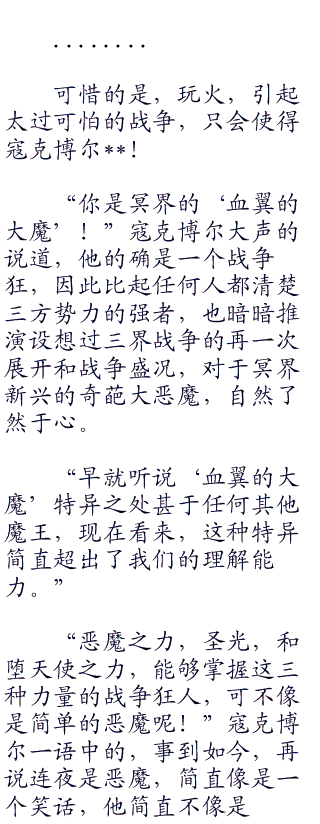 ........
可惜的是，玩火，引起
太过可怕的战争，只会使得
寇克博尔**！
“你是冥界的‘血翼的
大魔’！”寇克博尔大声的
说道，他的确是一个战争
狂，因此比起任何人都清楚
三方势力的强者，也暗暗推
演设想过三界战争的再一次
展开和战争盛况，对于冥界
新兴的奇葩大恶魔，自然了
然于心。
“早就听说‘血翼的大
魔’特异之处甚于任何其他
魔王，现在看来，这种特异
简直超出了我们的理解能
力。”
“恶魔之力，圣光，和
堕天使之力，能够掌握这三
种力量的战争狂人，可不像
是简单的恶魔呢！”寇克博
尔一语中的，事到如今，再
说连夜是恶魔，简直像是一
个笑话，他简直不像是